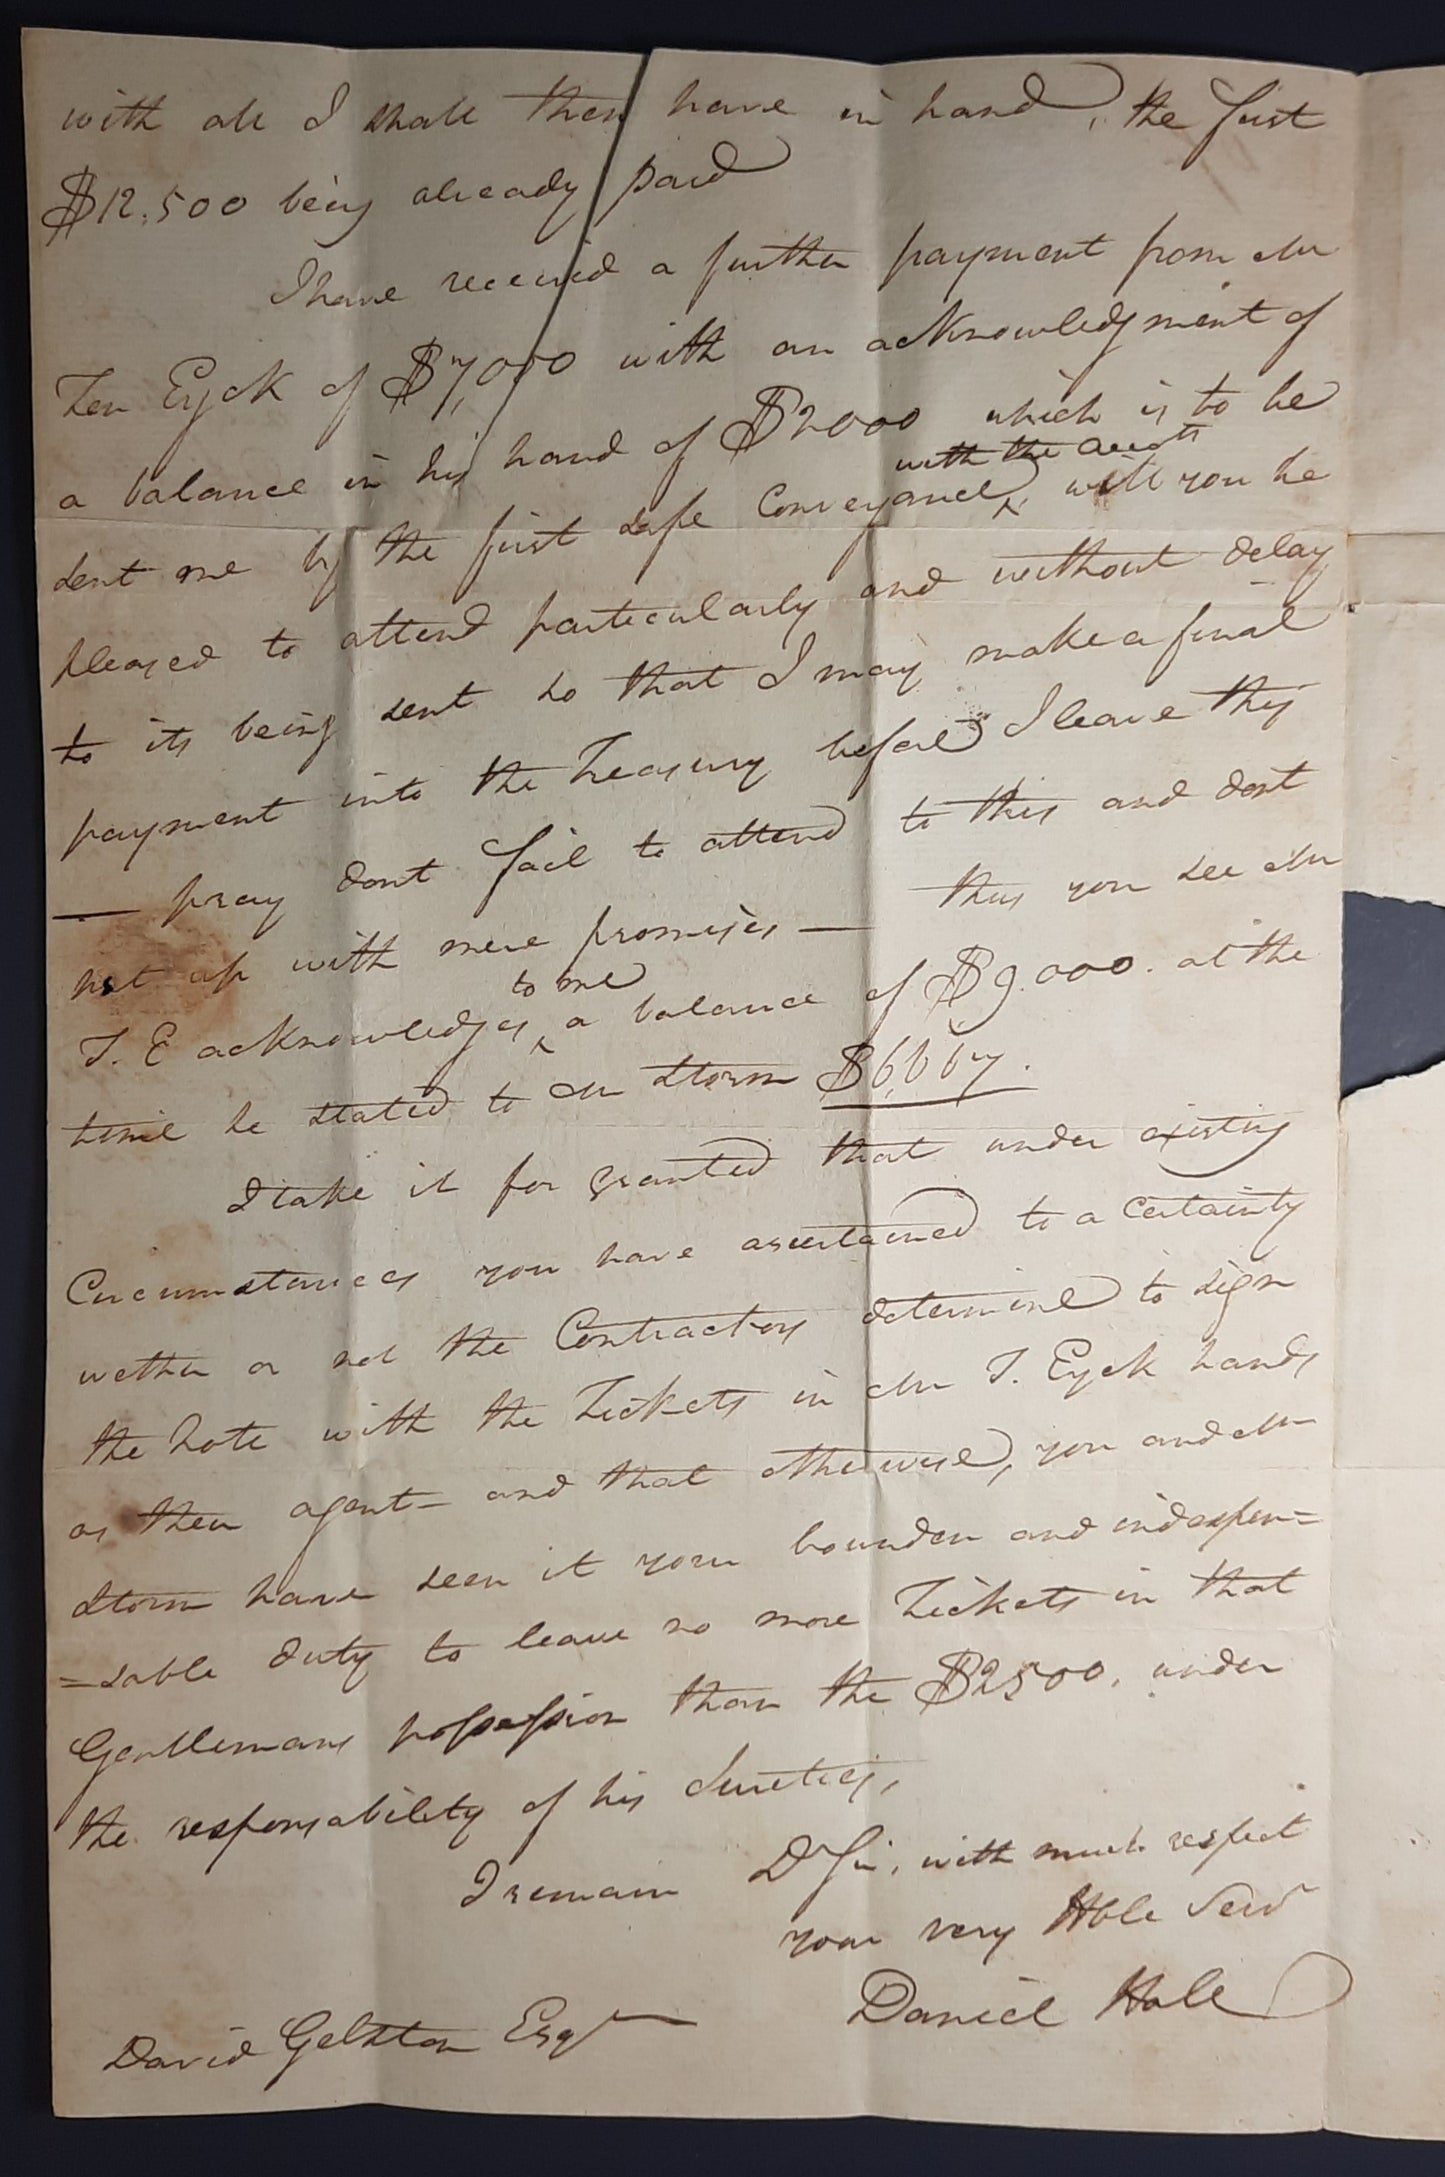 with all I shall then have in hand, the first
$12,500 being already paid
I have received a further payment from Mr
Ten Eyck of $7,000 with an acknowledgment of
a balance in his hand of $2000 which is to be
with the acots
sent me by the first safe Conveyance, will you be
pleased to attend particularly and without delay
to its being sent so that I may make a final
payment into the Treasury before I leave this
— pray dont fail to attend to this and dont
put up with mere promises — thus you see Mr
to me
T. E acknowledges a balance of $9.000. at the
time he stated to Mr Storm $6,667.
I take it for granted that under existing
Circumstances you have ascertained to a Certainty
wether or not the Contractors determine to sign
the note with the Tickets in Mr T. Eyck hands
as their agent – and that otherwise, you and Mr
Storm have seen it your bounden and indespen=
=sable duty to leave no more Tickets in that
Gentlemans possession than the $2500. under
the responsability of his Sureties,
I remain D Sir, with much respect
your very Hble Servt
Daniel Hale
David Gelston Esqr